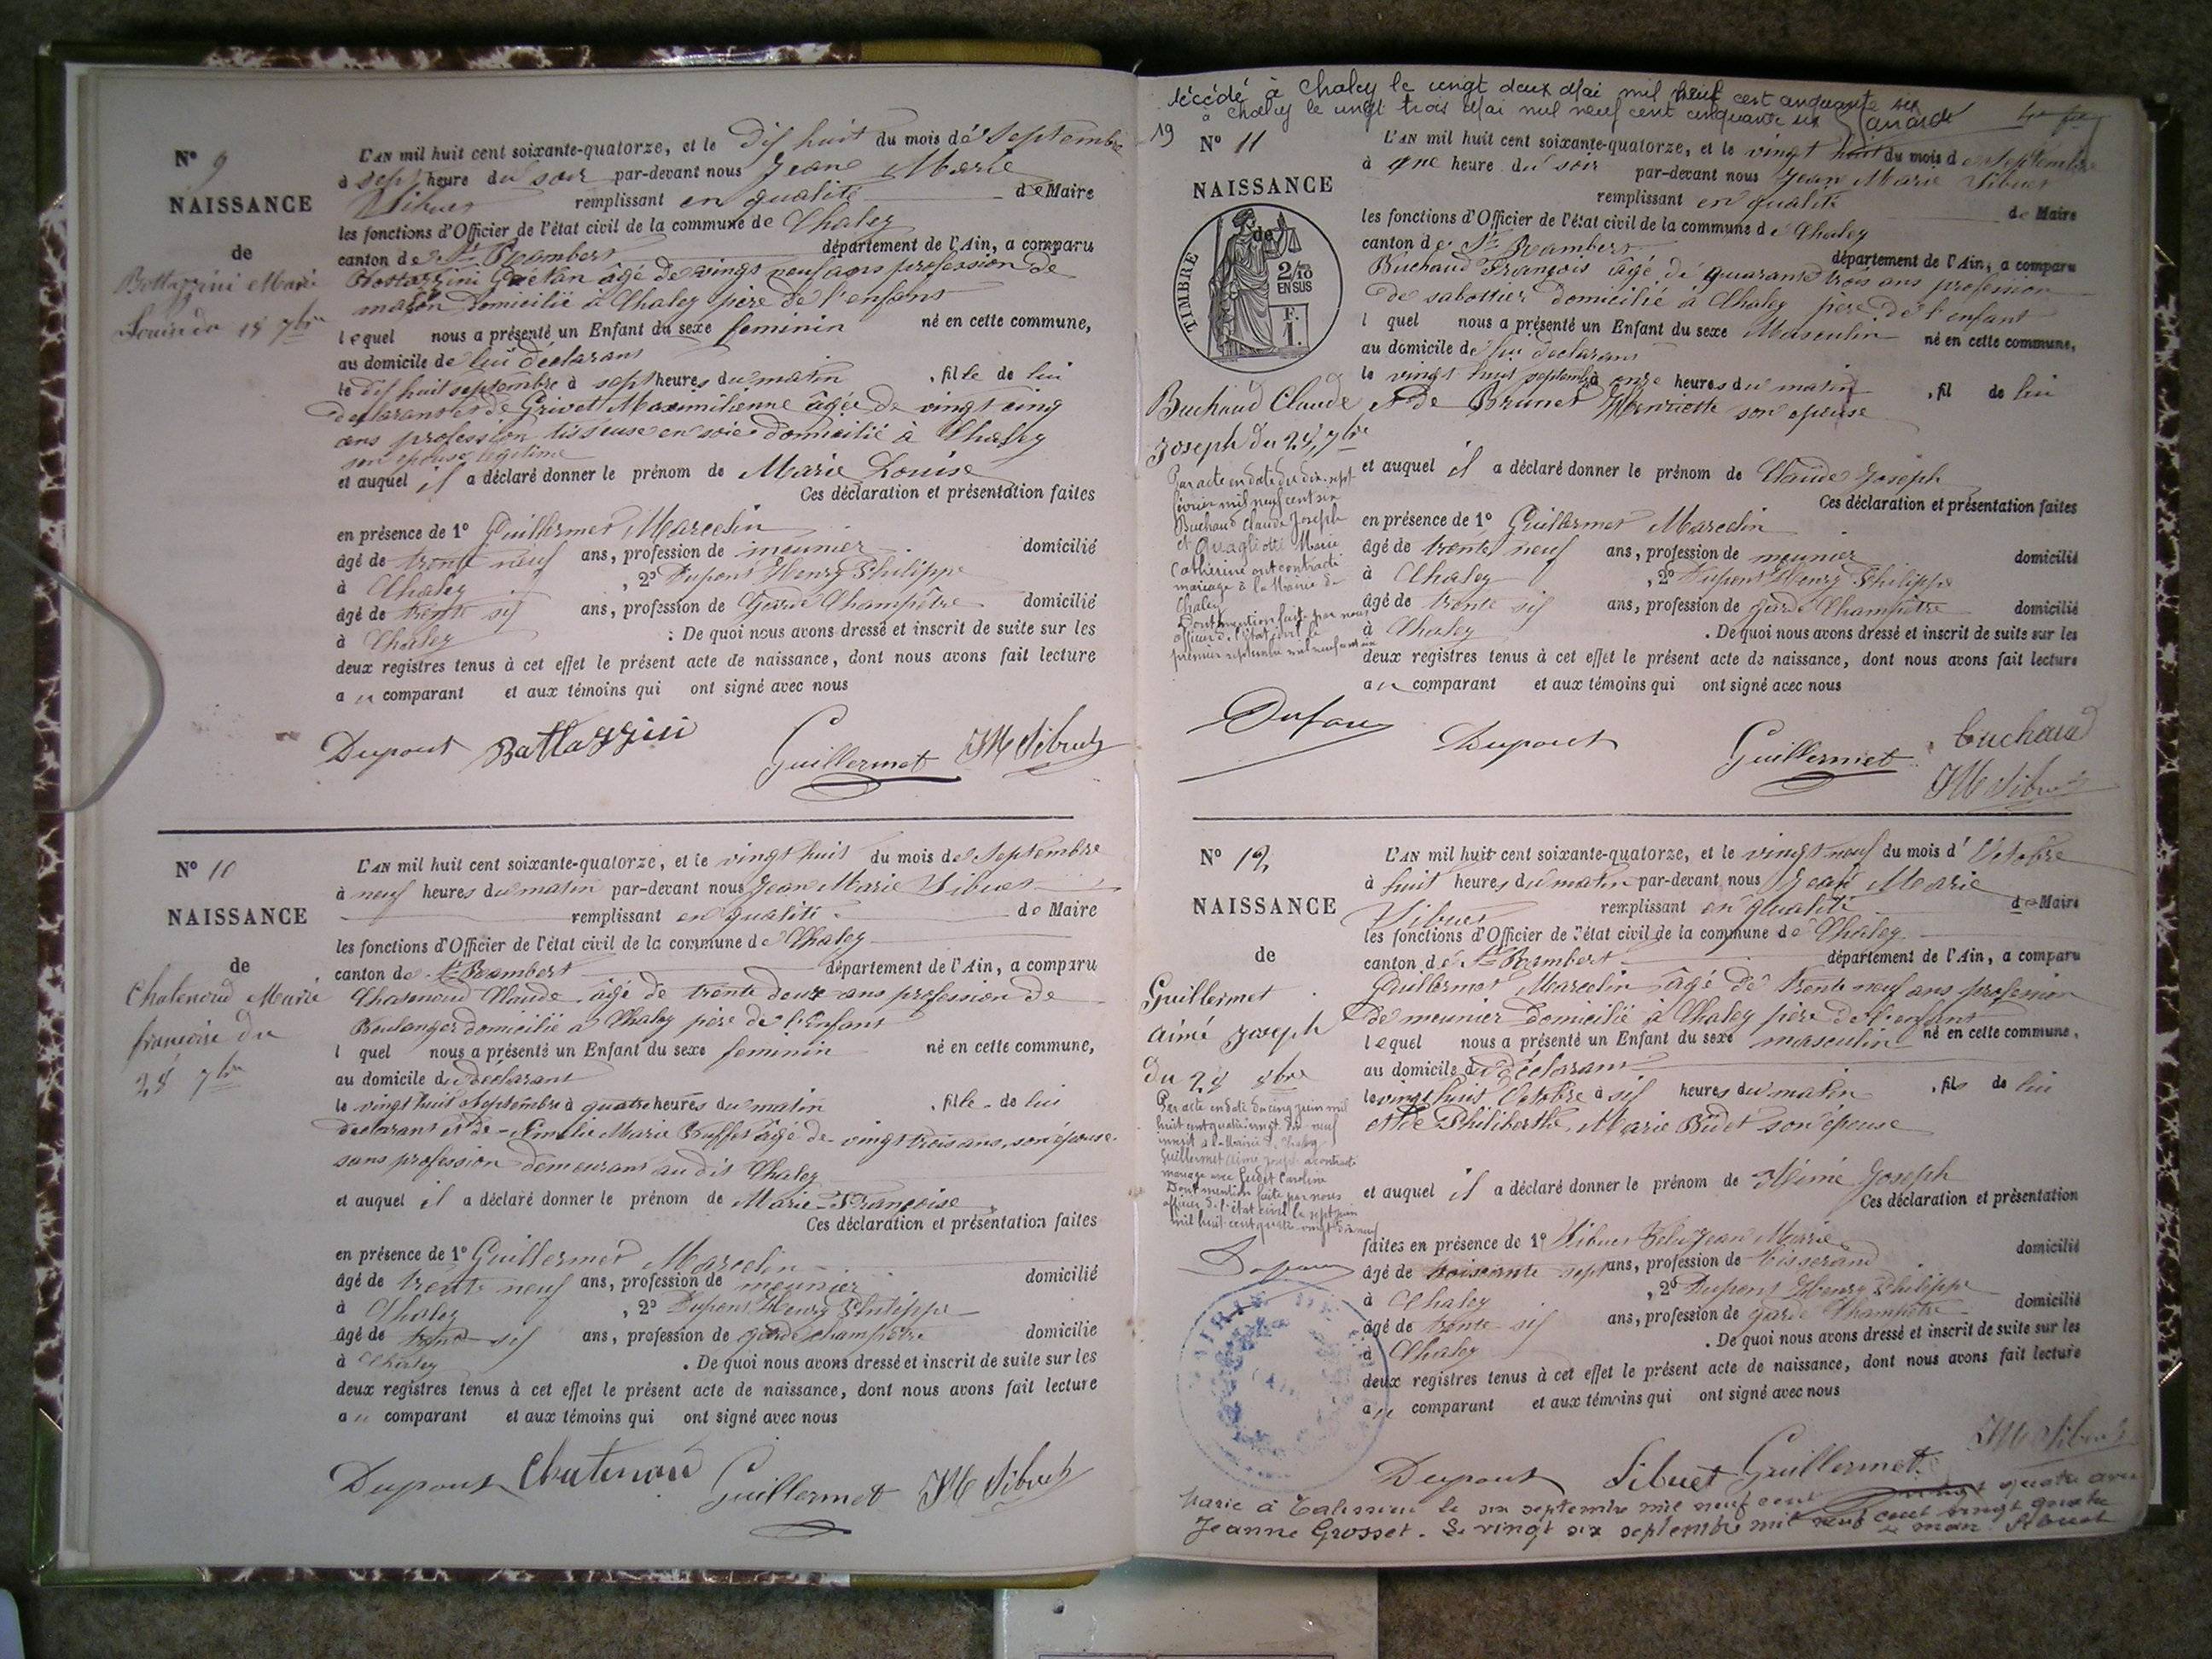 N° 9
NAISSANCE
de
Bottazzini Marie
Louise du 18 7bre
L'AN mil huit cent soixante-quatorze, et le Dix huit du mois de Septembre
à sept heure du soir par-devant nous Jean Marie
Sibuet remplissant en qualité de Maire
les fonctions d'Officier de l'état civil de la commune de Chaley
canton de St Rambert département de l'Ain, a comparu
Bottazzini Gaétan âgé de vingt neuf ans profession de
maçon domicilié à Chaley père de l'enfant
lequel nous a présenté un Enfant du sexe feminin né en cette commune,
au domicile de lui déclarant
le dix huit septembre à sept heures du matin , fille de lui
declarant et de Grivet Maximilienne âgée de vingt cinq
ans profession tisseuse en soie domicilié à Chaley
son épouse légitime
et auquel il a déclaré donner le prénom de Marie Louise
Ces déclaration et présentation faites
en présence de 1° Guillermet Marcelin
âgé de trente neuf ans, profession de meunier domicilié
à Chaley , 2° Dupont Henry Philippe
âgé de trente six ans, profession de Garde Champêtre domicilié
à Chaley : De quoi nous avons dressé et inscrit de suite sur les
deux registres tenus à cet effet le présent acte de naissance, dont nous avons fait lecture
au comparant et aux témoins qui ont signé avec nous
Dupont Battazzini Guillermet JM Sibuet
N° 10
NAISSANCE
de
Chatenoud Marie
françoise du
28 7bre
L'AN mil huit cent soixante-quatorze, et le vingt huit du mois de Septembre
à neuf heures du matin par-devant nous Jean Marie Sibuet
remplissant en qualité de Maire
les fonctions d'Officier de l'état civil de la commune de Chaley
canton de St Rambert département de l'Ain, a comparu
Chatenoud Claude âgé de trente deux ans profession de
Boulanger domicilié à Chaley père de l'Enfant
l quel nous a présenté un Enfant du sexe feminin né en cette commune,
au domicile du déclarant
le vingt huit Septembre à quatre heures du matin , fille de lui
declarant et de Amelie Marie Buffet âgé de vingt trois ans, son épouse
sans profession demeurant au dit Chaley
et auquel il a déclaré donner le prénom de Marie-Françoise
Ces déclaration et présentation faites
en présence de 1° Guillermet Marcelin
âgé de trente neuf ans, profession de meunier domicilié
à Chaley , 2° Dupont Henry Philippe
âgé de trente six ans, profession de garde champêtre domicilie
à Chaley . De quoi nous avons dressé et inscrit de suite sur les
deux registres tenus à cet effet le présent acte de naissance, dont nous avons fait lecture
au comparant et aux témoins qui ont signé avec nous
Dupont Chatenoud Guillermet JM Sibuet
décédé à Chaley le vingt deux Mai mil neuf cent cinquante six
à Chaley le vingt trois Mai mil neuf cent cinquante six
19
N° 11
NAISSANCE
de
TIMBRE
2/10 EN SUS
F. 1.
Buchaud Claude
Joseph du 28 7bre
Par acte en date du dix-sept
février mil neuf cent six
Buchaud Claude Joseph
et Quagliotti Marie
Catherine ont contracté
mariage à la Mairie de
Chaley
Dont mention faite par nous
officier de l'état civil le
premier septembre mil neuf cent six
L'AN mil huit cent soixante-quatorze, et le vingt huit du mois de Septembre
à une heure du soir par-devant nous Jean Marie Sibuet
remplissant en qualité de Maire
les fonctions d'Officier de l'état civil de la commune de Chaley
canton de St Rambert département de l'Ain, a comparu
Buchaud François âgé de quarante trois ans profession
de sabottier domicilié à Chaley père de l'enfant
l quel nous a présenté un Enfant du sexe Masculin né en cette commune,
au domicile de lui declarant
le vingt huit septembre à onze heures du matin , fil de lui
et de Brunet Henriette son épouse
et auquel il a déclaré donner le prénom de Claude Joseph
Ces déclaration et présentation faites
en présence de 1° Guillermet Marcelin
âgé de trente neuf ans, profession de meunier domicilié
à Chaley , 2° Dupont Henry Philippe
âgé de trente six ans, profession de garde Champêtre domicilié
à Chaley . De quoi nous avons dressé et inscrit de suite sur les
deux registres tenus à cet effet le présent acte de naissance, dont nous avons fait lecture
au comparant et aux témoins qui ont signé avec nous
Dupont Guillermet buchaud
JM Sibuet
N° 12
NAISSANCE
de
Guillermet
Aimé Joseph
du 28 8bre
Par acte en date du cinq juin mil
huit cent quatre vingt dix neuf
inscrit à la Mairie de Chaley
Guillermet Aimé Joseph a contracté
mariage avec Caroline
Dont mention faite par nous
officier de l'état civil le sept juin
mil huit cent quatre-vingt dix neuf
L'AN mil huit cent soixante-quatorze, et le vingt neuf du mois d'Octobre
à huit heures du matin par-devant nous Jean Marie
Sibuet remplissant en qualité de Maire
les fonctions d'Officier de l'état civil de la commune de Chaley
canton de St Rambert département de l'Ain, a comparu
Guillermet Marcelin âgé de trente neuf ans profession
de meunier domicilié à Chaley père de l'enfant
lequel nous a présenté un Enfant du sexe masculin né en cette commune,
au domicile du déclarant
le vingt huit Octobre à six heures du matin , fils de lui
et de Philiberthe Marie Budet son épouse
et auquel il a déclaré donner le prénom de Aimé Joseph
Ces déclaration et présentation
faites en présence de 1° Sibuet Jean Marie domicilié
âgé de soixante sept ans, profession de tisserand
à Chaley , 2° Dupont Henry Philippe
âgé de trente six ans, profession de garde Champêtre domicilié
à Chaley . De quoi nous avons dressé et inscrit de suite sur les
deux registres tenus à cet effet le présent acte de naissance, dont nous avons fait lecture
au comparant et aux témoins qui ont signé avec nous
Dupont Sibuet Guillermet JM Sibuet
Marié à Talissieu le six septembre mil neuf cent vingt quatre avec
Jeanne Grosset. Le vingt six septembre mil neuf cent vingt quatre
Le maire Sibuet